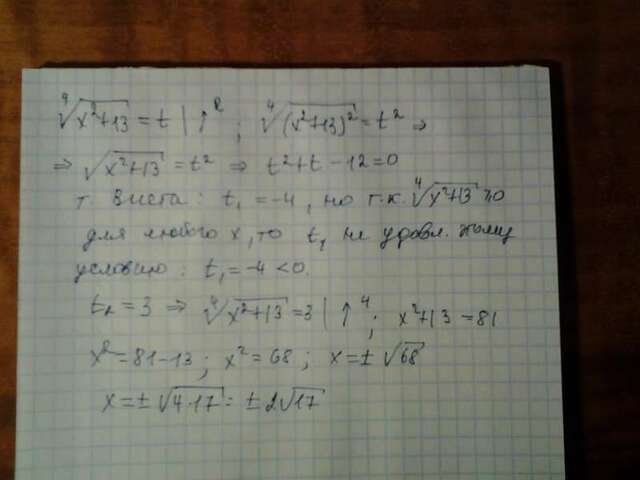 ⁴√(x²+13) = t | ↑² ; ⁴√((x²+13)²) = t² ⇒
⇒ √(x²+13) = t² ⇒ t²+t−12=0
т. Виета: t₁ = −4, но т.к. ⁴√(x²+13) ≥0
для любого x, то t₁ не удовл. этому
условию: t₁ = −4 < 0.
t₂ = 3 ⇒ ⁴√(x²+13) = 3 | ↑⁴ ; x²+13 = 81
x² = 81−13 ; x² = 68 ; x = ± √68
x = ± √(4·17) = ± 2√17